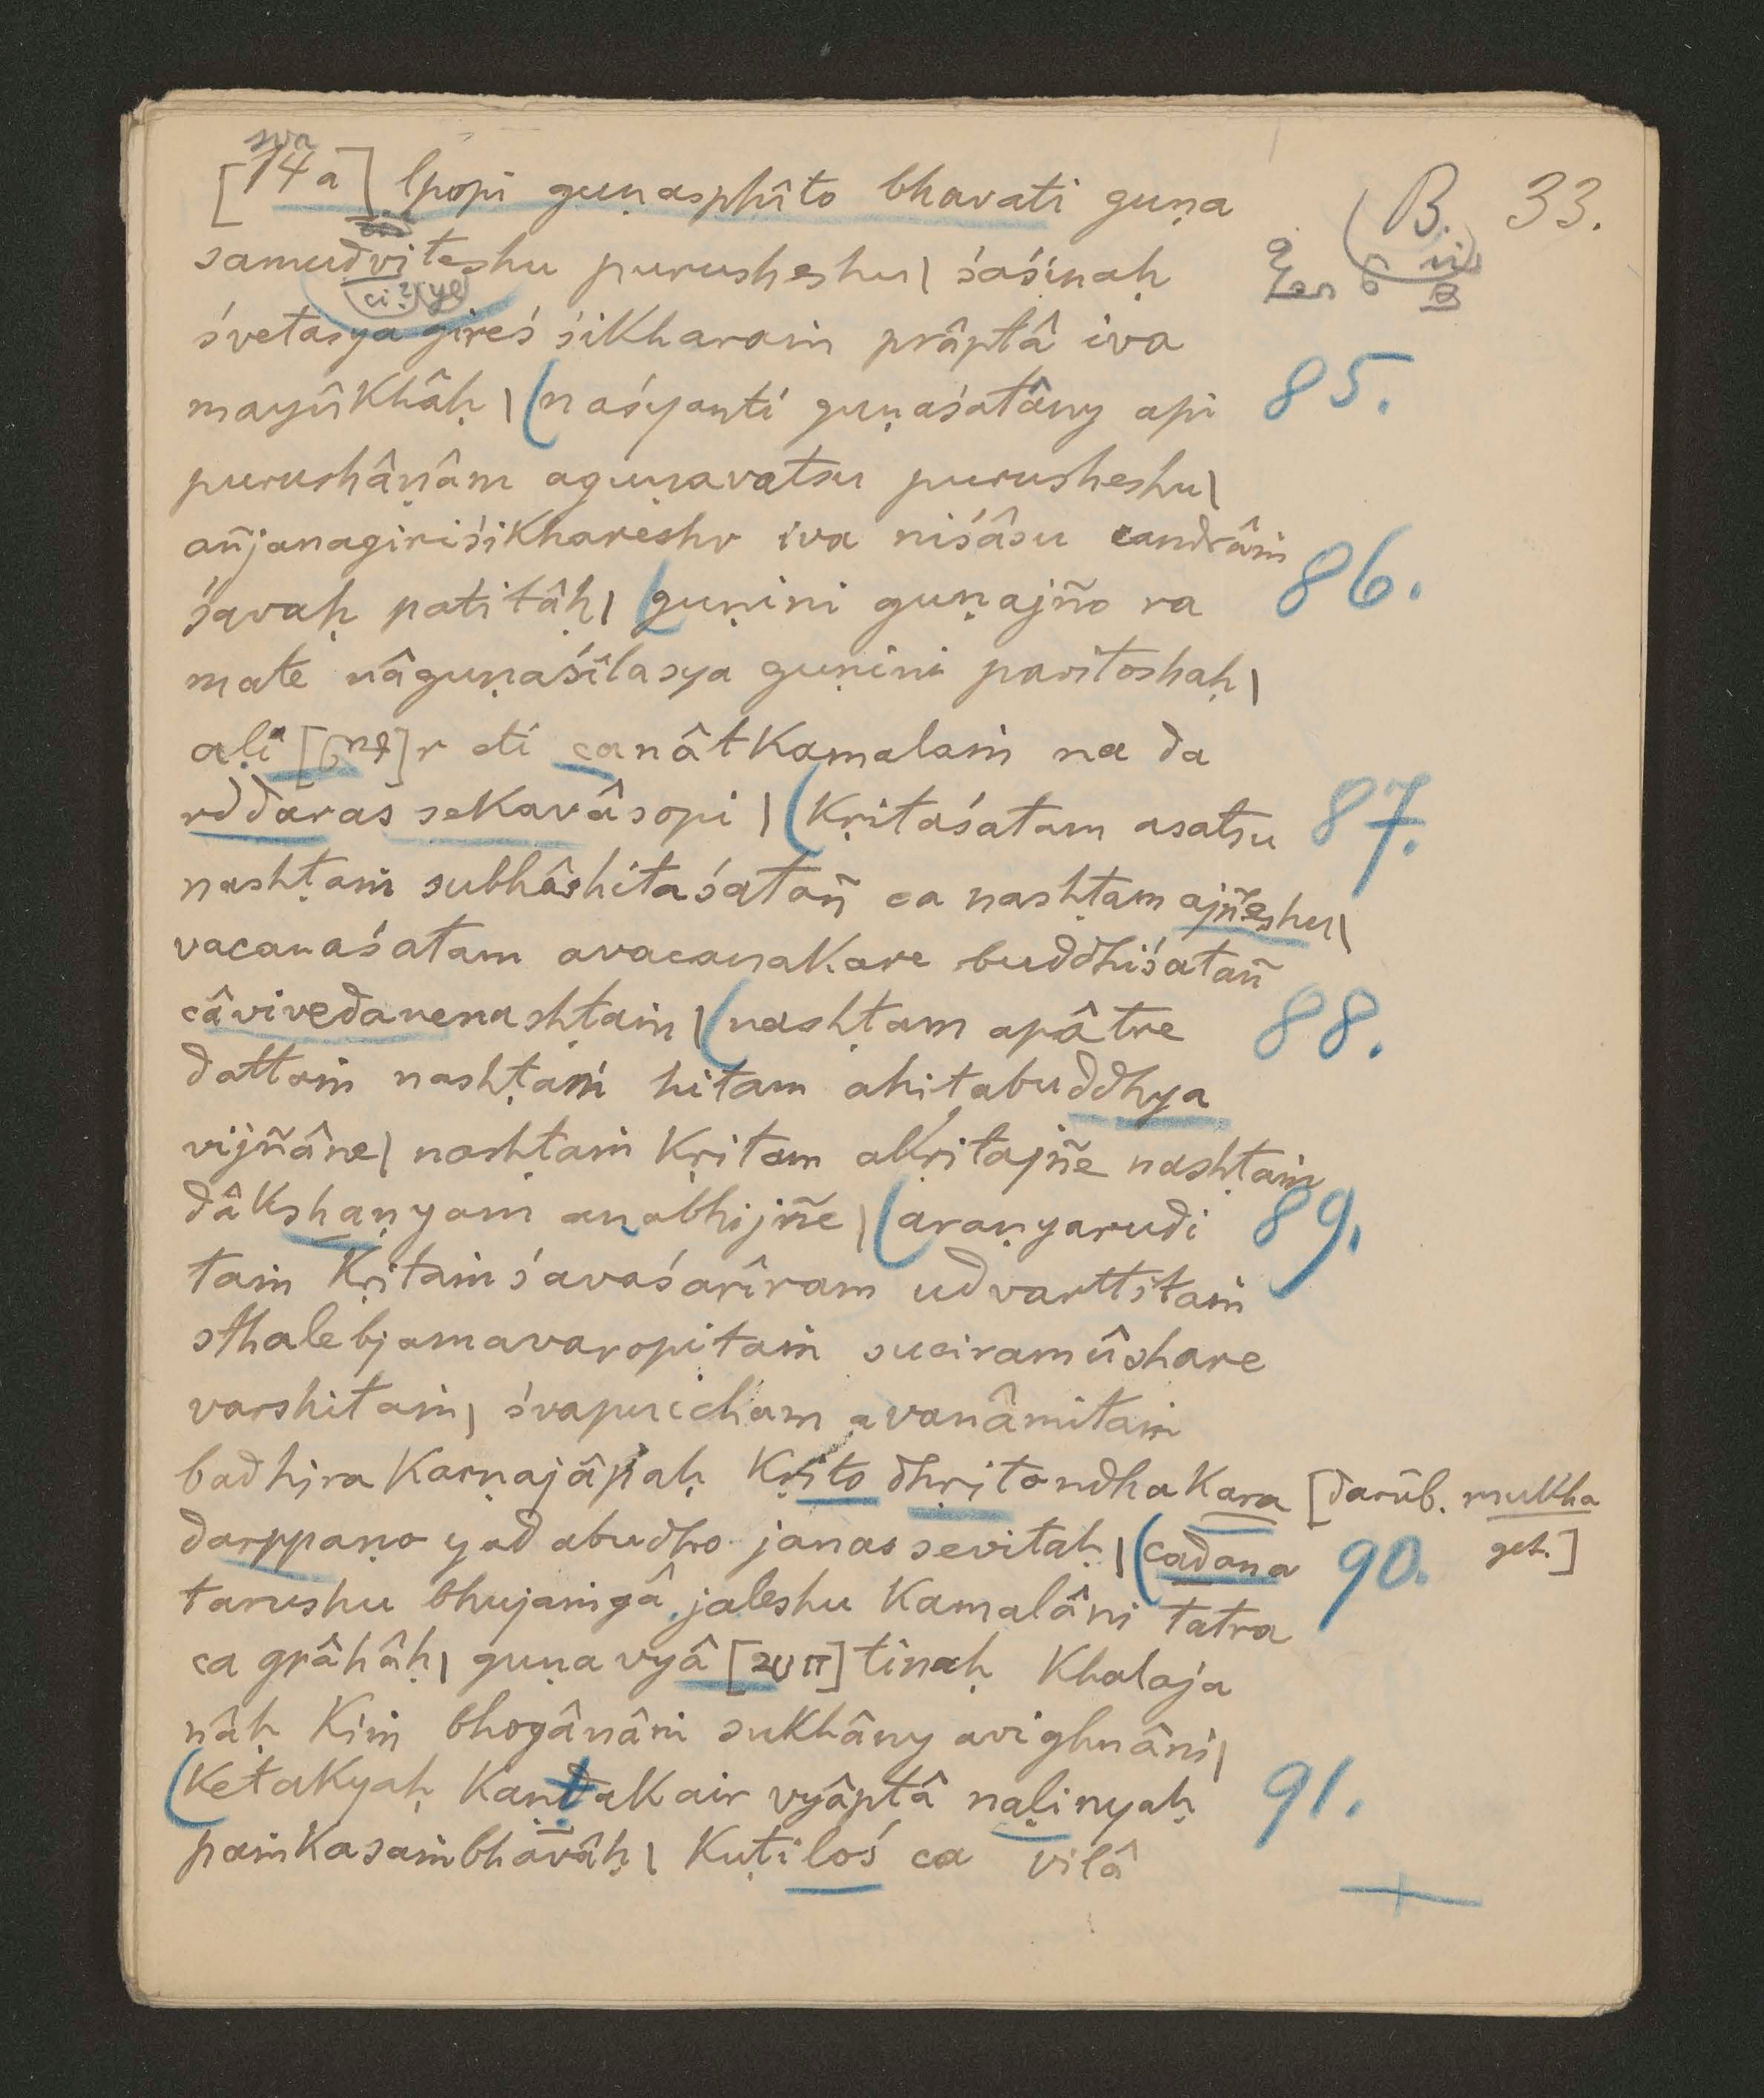 sva
[14a] lpopi guṇasphîto bhavati guṇa
B. 33.
samudviteshu purusheshu| śaśinaḥ
ci? ye
śvetasya gireś śikharaṁ prâptâ iva
mayûkhâḥ | (naśyanti guṇaśatâny api 85.
purushâṇâm aguṇavatsu purusheshu|
añjanagiriśikhareshv iva niśâsu candrâṁ
śavaḥ patitâḥ| (guṇini guṇajño ra 86.
mate nâguṇaśîlasya guṇini paritoshaḥ|
aḷi [ ]r eti canât kamalaṁ na da
rddaras sekavâsopi | (kṛitaśatam asatsu 87.
nashṭaṁ subhâshitaśatañ ca nashṭam ajñeshu|
vacanaśatam avacanakare buddhiśatañ
câvivedanenashṭaṁ | (nashṭam apâtre 88.
dattaṁ nashṭaṁ hitam ahitabuddhya
vijñâne| nashṭaṁ kṛitam akṛitajñe nashṭaṁ
dâkshaṇyam anabhijñe | (araṇyarudi 89.
taṁ kṛitaṁ śavaśarîram udvarttitaṁ
sthalebjamavaropitaṁ suciramûshare
varshitaṁ| śvapuccham avanâmitaṁ
badhira karṇajâpaḥ kṛito dhṛitondhakara [darüb. mukha
darppaṇo yad abudho janas sevitaḥ | (cadana 90. get.]
tarushu bhujaṁgâ jaleshu kamalâni tatra
ca grâhâḥ| guṇavyâ [ ] tinaḥ khalaja
nâḥ kiṁ bhogânâṁ sukhâny avighnâni|
(ketakyaḥ kaṇṭakair vyâptâ naḷinyaḥ 91.
paṁkasaṁbhavâḥ| kuṭiloś ca vilâ